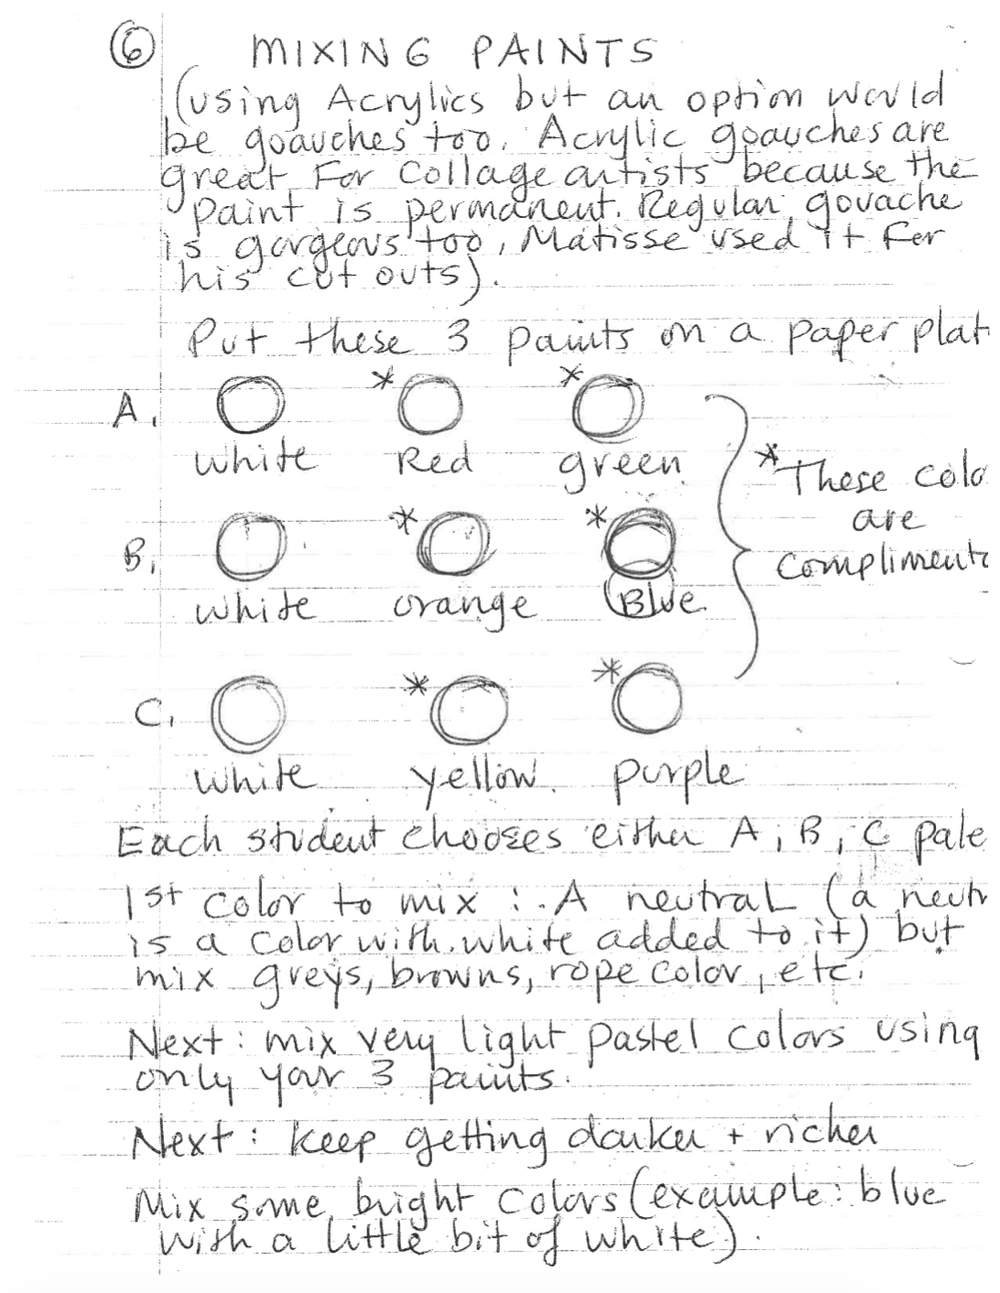 6 MIXING PAINTS
(using Acrylics but an option would
be goauches too. Acrylic goauches are
great For Collage artists because the
paint is permanent. Regular gouache
is gorgeous too, Matisse used it for
his cut outs).
Put these 3 paints on a paper plat
A. * *
white Red green
*These colo
are
complimenta
B. * *
white orange Blue
C. * *
white yellow purple
Each student chooses either A, B, C pale
1st color to mix : A neutral (a neutr
is a color with white added to it) but
mix greys, browns, rope color, etc.
Next: mix very light pastel colors using
only your 3 paints.
Next: keep getting darker + richer
Mix some bright colors (example: blue
with a little bit of white).